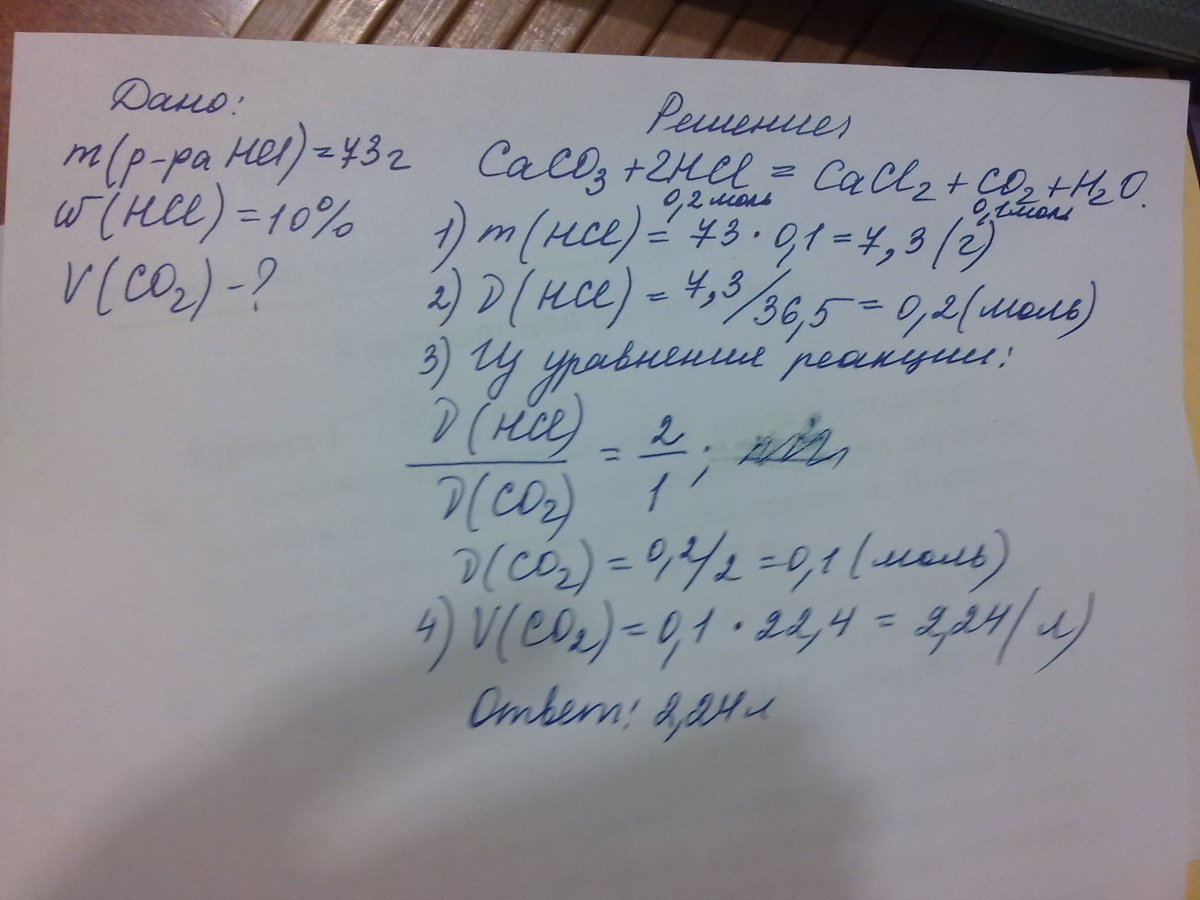 Дано:
m(р-ра HCl)=73г
ω(HCl)=10%
V(CO₂)-?
Решение,
CaCO₃+2HCl=CaCl₂+CO₂+H₂O.
0,2моль 0,1моль
1) m(HCl)=73·0,1=7,3(г)
2) D(HCl)=7,3/36,5=0,2(моль)
3) Из уравнения реакции:
D(HCl)/D(CO₂)=2/1;
D(CO₂)=0,2/2=0,1(моль)
4) V(CO₂)=0,1·22,4=2,24(л)
Ответ: 2,24л